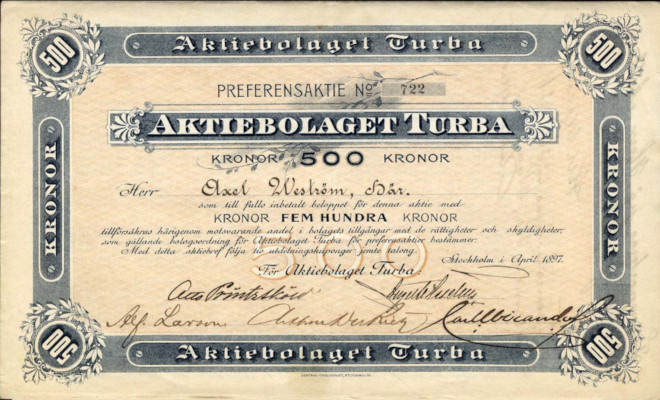 500 Aktiebolaget Turba 500
PREFERENSAKTIE No 722
AKTIEBOLAGET TURBA
KRONOR 500 KRONOR
Herr Axel Weström, Här.
som till fullo inbetalt beloppet för denna aktie med
KRONOR FEM HUNDRA KRONOR
tillförsäkras härigenom motsvarande andel i bolagets tillgångar med de rättigheter och skyldigheter,
som gällande bolagsordning för Aktiebolaget Turba för preferensaktier bestämmer.
Med detta aktiebref följa tio utdelningskuponger jemte talong.
Stockholm i April 1897.
500
För Aktiebolaget Turba
Alf. Larson
KRONOR
KRONOR
500 Aktiebolaget Turba 500